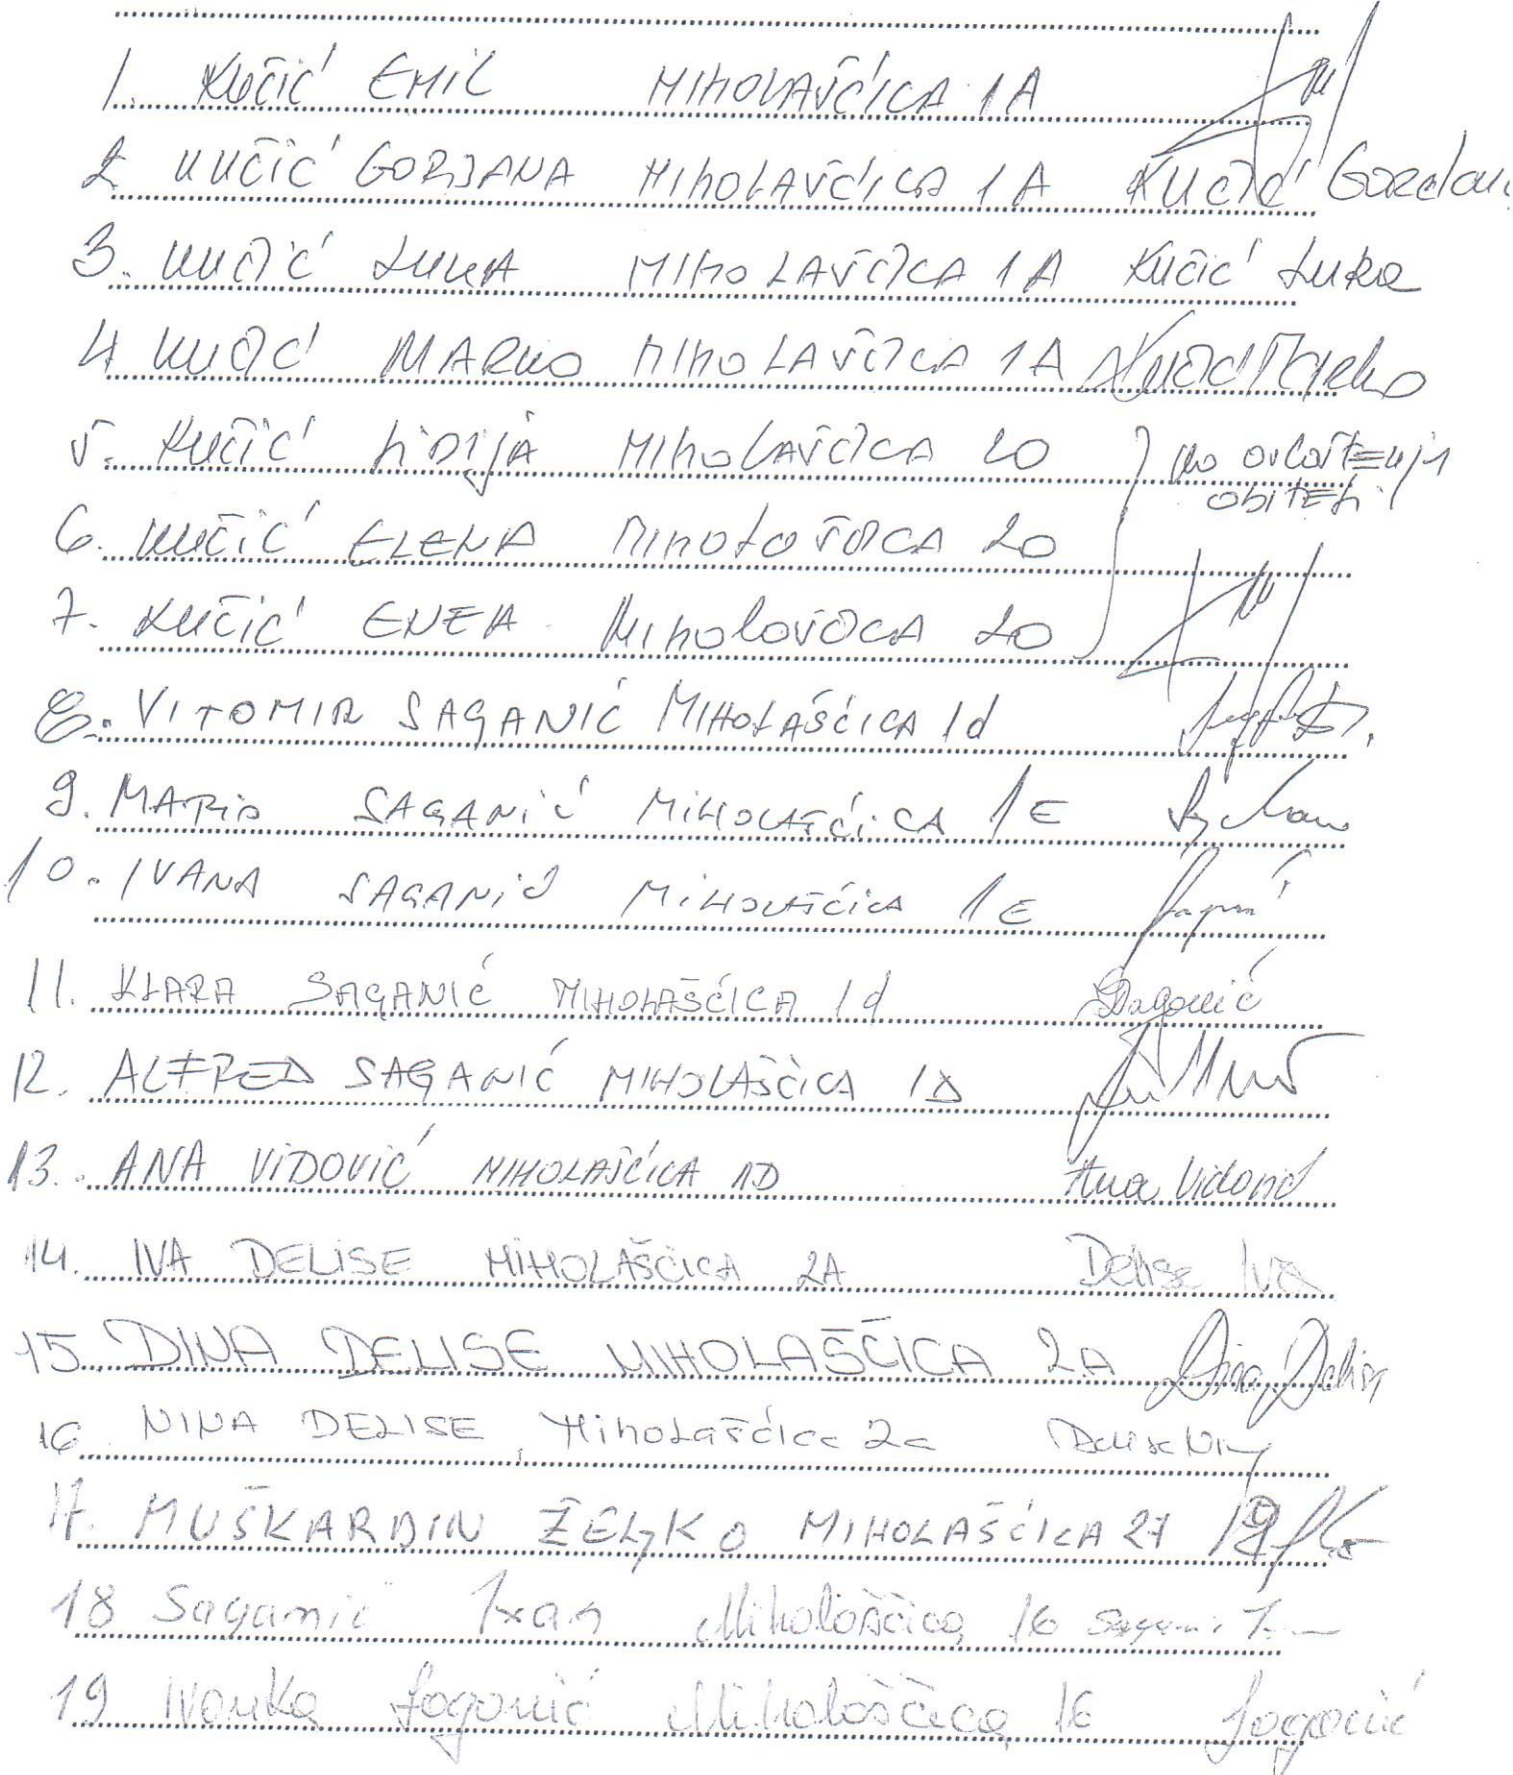 1. KUČIĆ EMIL MIHOLAŠĆICA 1A
2. KUČIĆ GORDANA MIHOLAŠĆICA 1A KUČIĆ Gordan
3. KUČIĆ LUKA MIHOLAŠĆICA 1A Kučić Luka
4. KUČIĆ MARKO MIHOLAŠĆICA 1A Kučić Marko
5. KUČIĆ LIDIJA MIHOLAŠĆICA 20 } PO OVLAŠTENJU
OBITELJI
6. KUČIĆ ELENA MIHOLAŠĆICA 20
7. KUČIĆ ENEA MIHOLAŠĆICA 20
8. VITOMIR SAGANIĆ MIHOLAŠĆICA 1d
9. MARIO SAGANIĆ MIHOLAŠĆICA 1E
10. IVANA SAGANIĆ MIHOLAŠĆICA 1E
11. KLARA SAGANIĆ MIHOLAŠĆICA 1d Saganić
12. ALFRED SAGANIĆ MIHOLAŠČICA 1D
13. ANA VIDOVIĆ MIHOLAŠĆICA 1D Ana Vidović
14. IVA DELISE MIHOLAŠČICA 2A Delise Iva
15. DINA DELISE MIHOLAŠČICA 2A Dina Delise
16 NINA DELISE, Miholašćica 2a Delise Nina
17. MUŠKARDIN ŽELJKO MIHOLAŠĆICA 27
18 Saganić Ivan Miholaščica 16 Saganić
19 Ivanka Saganić Miholaščica 16 Saganić